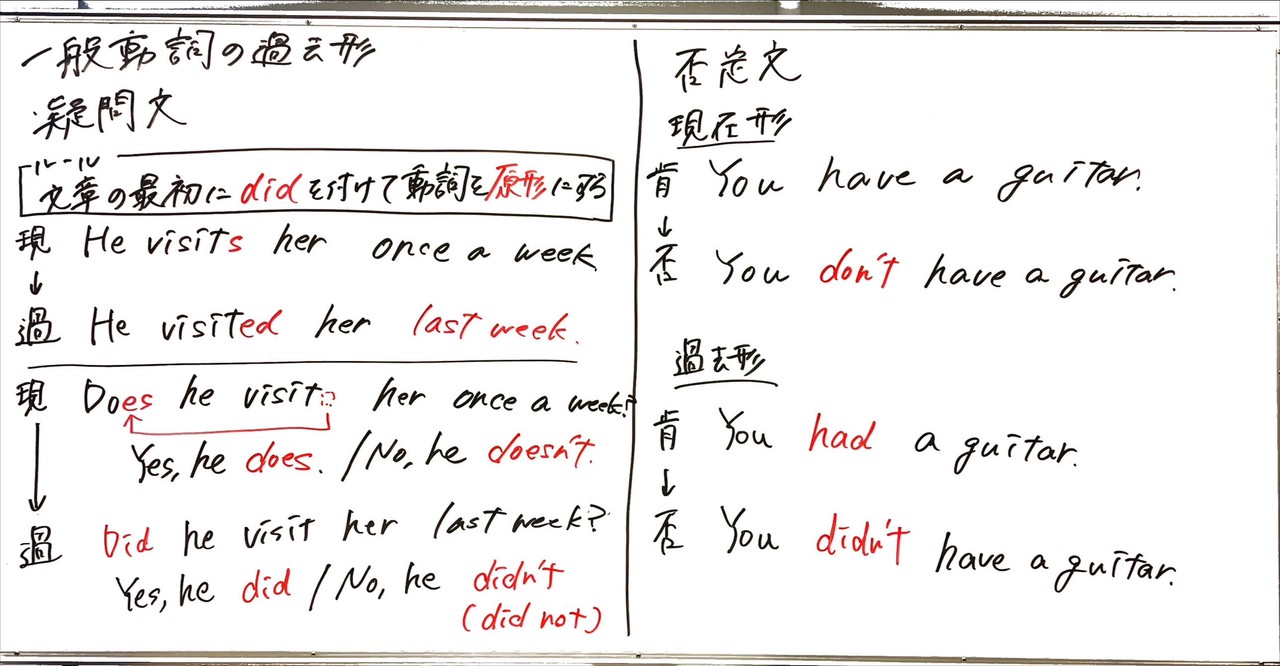 一般動詞の過去形
疑問文
ルール
文章の最初にdidを付けて動詞を原形にする
現 He visits her once a week.
↓
過 He visited her last week.
現 Does he visit her once a week?
Yes, he does. / No, he doesn't.
↓
過 Did he visit her last week?
Yes, he did / No, he didn't
(did not)
否定文
現在形
肯 You have a guitar.
↓
否 You don't have a guitar.
過去形
肯 You had a guitar.
↓
否 You didn't have a guitar.